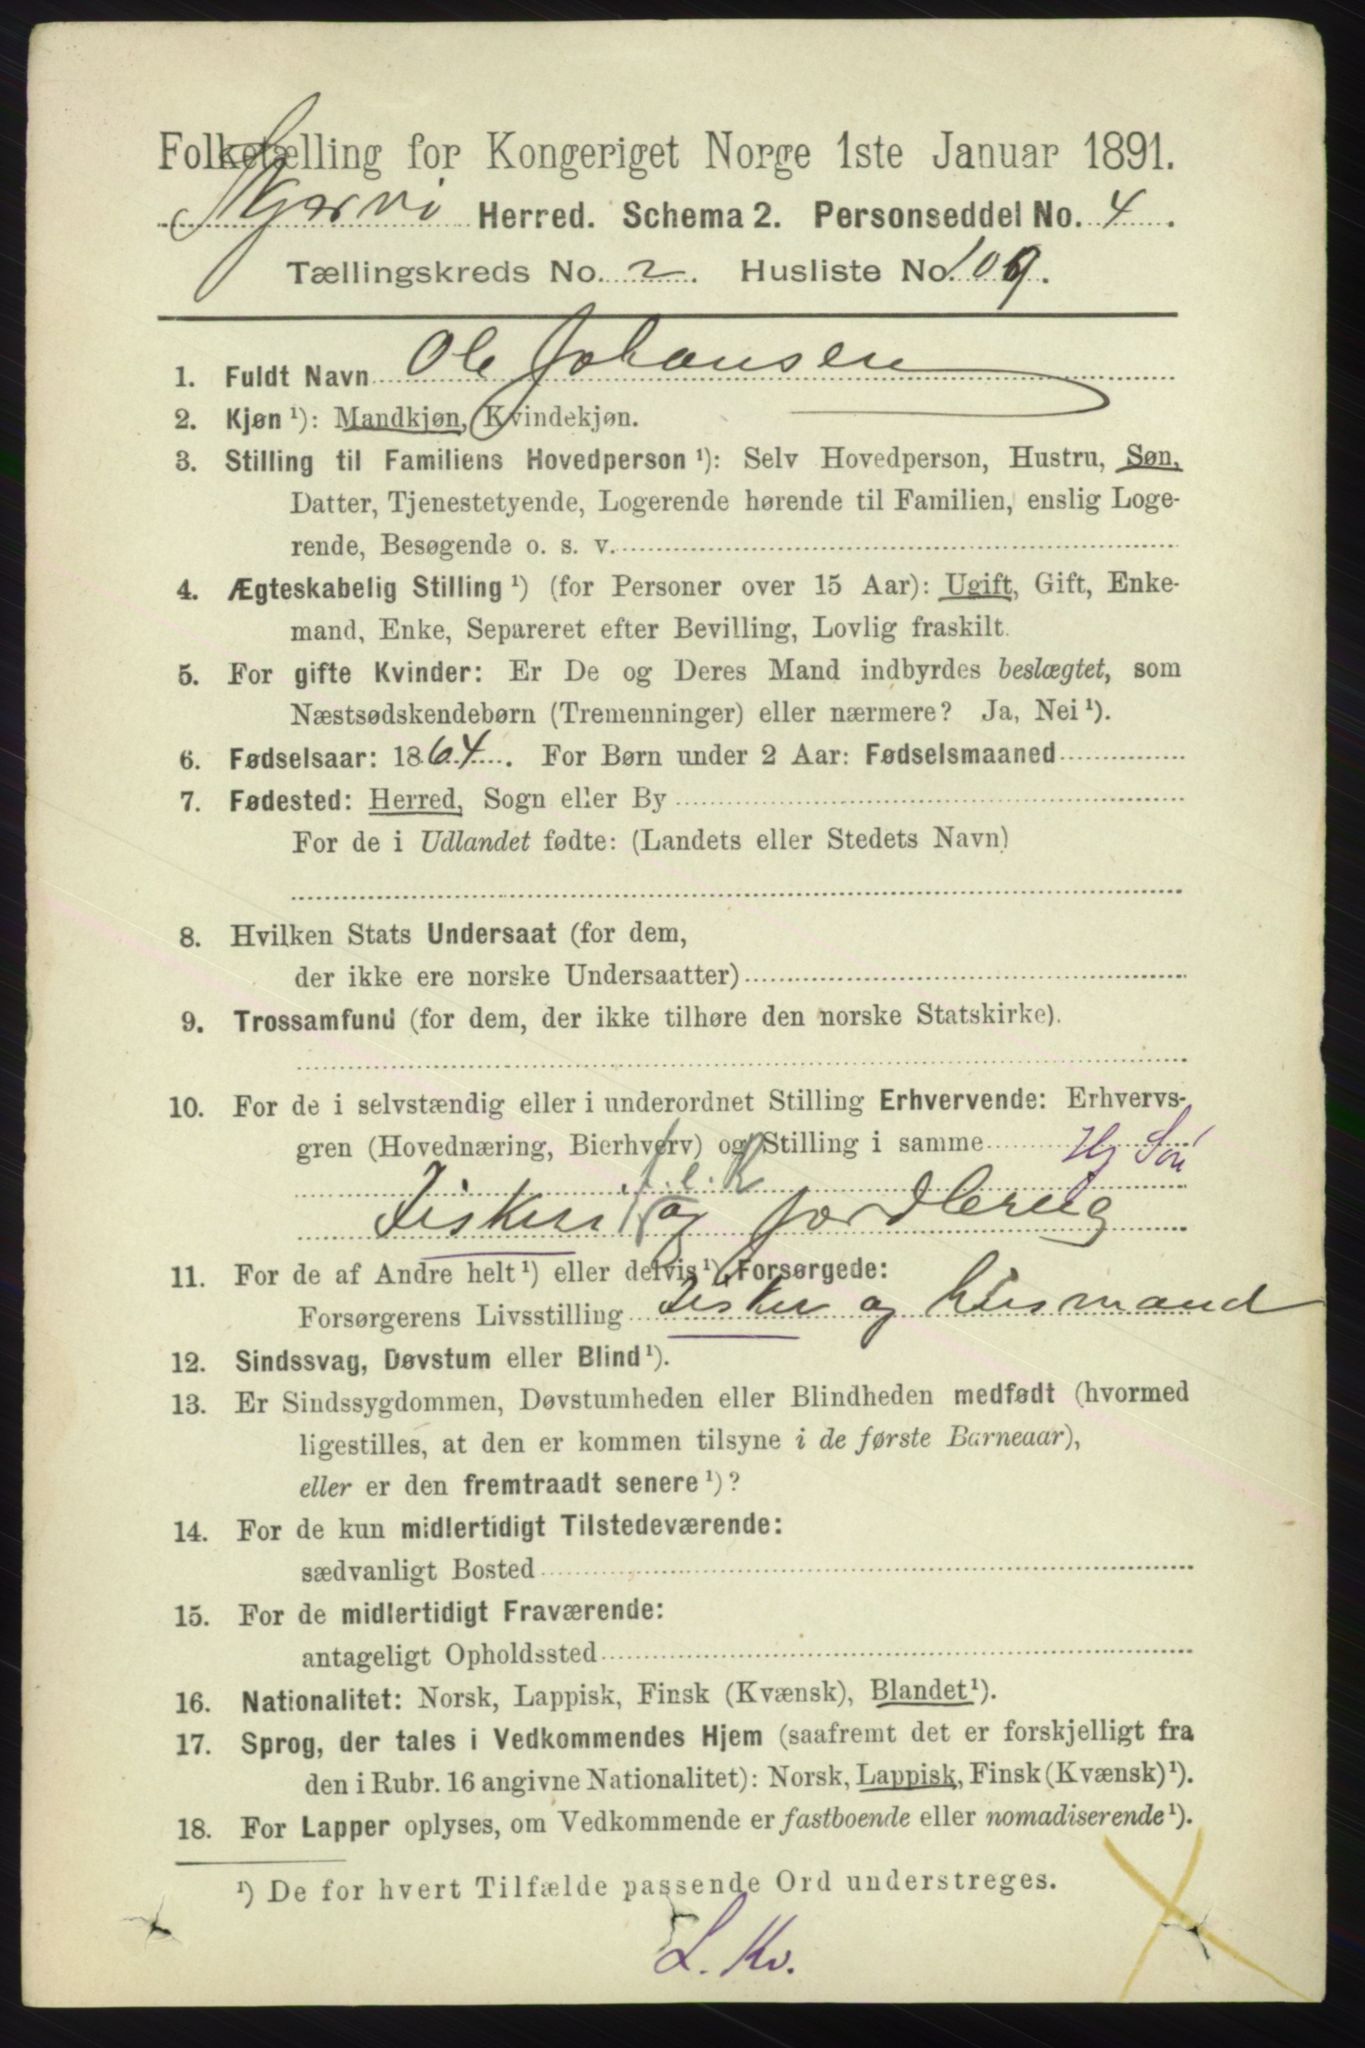 Folketælling for Kongeriget Norge 1ste Januar 1891.
Skjærvø Herred. Schema 2. Personseddel No. 4.
Tællingskreds No. 2. Husliste No. 109.
1. Fuldt Navn Ole Johansen
2. Kjøn ¹): Mandkjøn, Kvindekjøn.
3. Stilling til Familiens Hovedperson ¹): Selv Hovedperson, Hustru, Søn,
Datter, Tjenestetyende, Logerende hørende til Familien, enslig Loge-
rende, Besøgende o. s. v.
4. Ægteskabelig Stilling ¹) (for Personer over 15 Aar): Ugift, Gift, Enke-
mand, Enke, Separeret efter Bevilling, Lovlig fraskilt.
5. For gifte Kvinder: Er De og Deres Mand indbyrdes beslægtet, som
Næstsødskendebørn (Tremenninger) eller nærmere? Ja, Nei ¹).
6. Fødselsaar: 1864. For Børn under 2 Aar: Fødselsmaaned
7. Fødested: Herred, Sogn eller By
For de i Udlandet fødte: (Landets eller Stedets Navn)
8. Hvilken Stats Undersaat (for dem,
der ikke ere norske Undersaatter)
9. Trossamfund (for dem, der ikke tilhøre den norske Statskirke).
10. For de i selvstændig eller i underordnet Stilling Erhvervende: Erhvervs-
gren (Hovednæring, Bierhverv) og Stilling i samme Hj Søn
Fisker og Jordbrug
11. For de af Andre helt ¹) eller delvis ¹) Forsørgede:
Forsørgerens Livsstilling Fisker og husmand
12. Sindssvag, Døvstum eller Blind ¹).
13. Er Sindssygdommen, Døvstumheden eller Blindheden medfødt (hvormed
ligestilles, at den er kommen tilsyne i de første Barneaar),
eller er den fremtraadt senere ¹)?
14. For de kun midlertidigt Tilstedeværende:
sædvanligt Bosted
15. For de midlertidigt Fraværende:
antageligt Opholdssted
16. Nationalitet: Norsk, Lappisk, Finsk (Kvænsk), Blandet ¹).
17. Sprog, der tales i Vedkommendes Hjem (saafremt det er forskjelligt fra
den i Rubr. 16 angivne Nationalitet): Norsk, Lappisk, Finsk (Kvænsk) ¹).
18. For Lapper oplyses, om Vedkommende er fastboende eller nomadiserende ¹).
¹) De for hvert Tilfælde passende Ord understreges.
L. Kv.